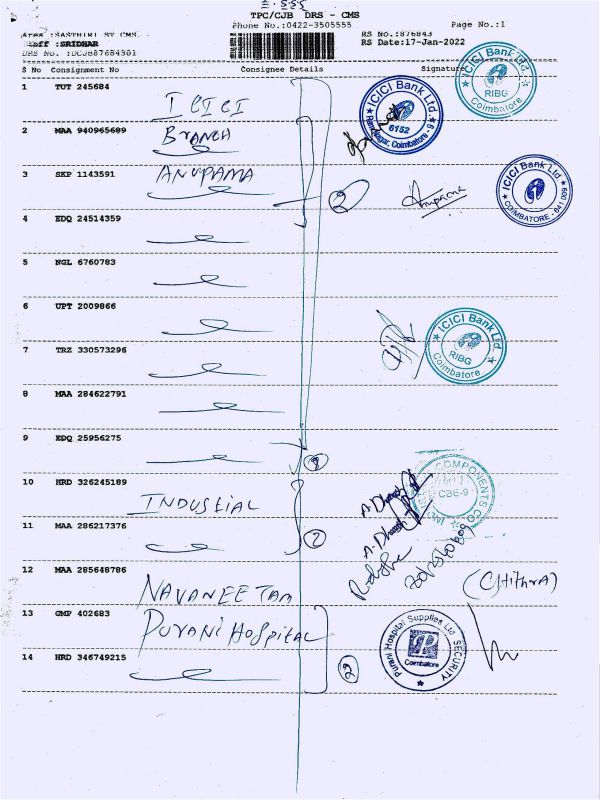 TPC/CJB DRS - CMS
Phone No.:0422-3505555
Page No.:1
Area :SASTHIRI ST CMS
RS No.:876843
Staff :SRIDHAR
RS Date:17-Jan-2022
DRS No. :DCJB87684301
S No Consignment No Consignee Details Signature
1 TUT 245684
ICICI
2 MAA 940965689
Branch
3 SKP 1143591
ANUPAMA
2
Anupama
4 EDQ 24514359
5 NGL 6760783
6 UPT 2009866
7 TRZ 330573296
8 MAA 284622791
9 EDQ 25956275
10 HRD 326245189
INDUSTIAL
11 MAA 286217376
2
12 MAA 285648786
NAVANEETAM
(Chithra)
13 GMP 402683
PURANI HOSPITAL
14 HRD 346749215
ICICI Bank Ltd
RIBG
Coimbatore
ICICI Bank Ltd.
6152
Ram Nagar, Coimbatore - 9
ICICI Bank Ltd
COIMBATORE - 641 009
ICICI Bank Ltd.
RIBG
Coimbatore
COMPONENTS CO
CBE-9
A. Dhanesh
A. Dhanesh
Purani Hospital Supplies Ltd
SECURITY
Coimbatore